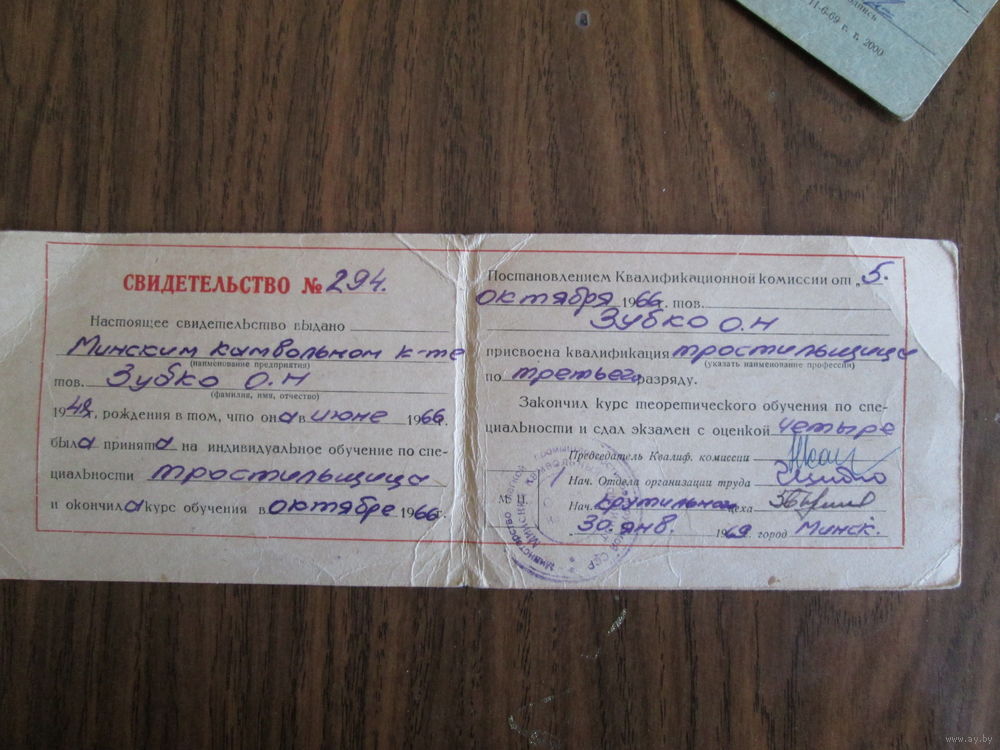 СВИДЕТЕЛЬСТВО № 294.
Настоящее свидетельство выдано
Минским камвольном к-те
(наименование предприятия)
тов. Зубко О.Н
(фамилия, имя, отчество)
1948 г. рождения в том, что она в июне 1966 г.
была принята на индивидуальное обучение по спе-
циальности тростильщица
и окончила курс обучения в октябре 1966 г.
Постановлением Квалификационной комиссии от „5.
октября 1966 г. тов.
Зубко О.Н
присвоена квалификация тростильщица
(указать наименование профессии)
по третьего разряду.
Закончил курс теоретического обучения по спе-
циальности и сдал экзамен с оценкой четыре
Председатель Квалиф. комиссии
Нач. Отдела организации труда
М. П.
Нач. крутильного цеха
30. янв. 1969 г. город Минск.
Подпись
11-6-69 г. т. 2000
www.ay.by